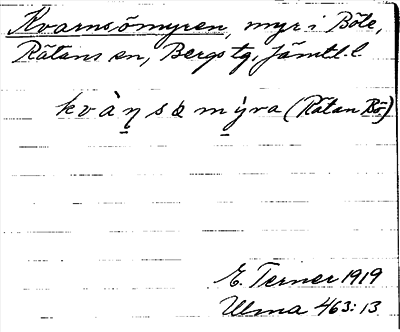 Kvarnsömyren, myr i Böle,
Rätans sn, Bergs tg, Jämtl. l.
kvàṇsömỳra (Rätan Bö)
E. Terner 1919
Ulma 463:13